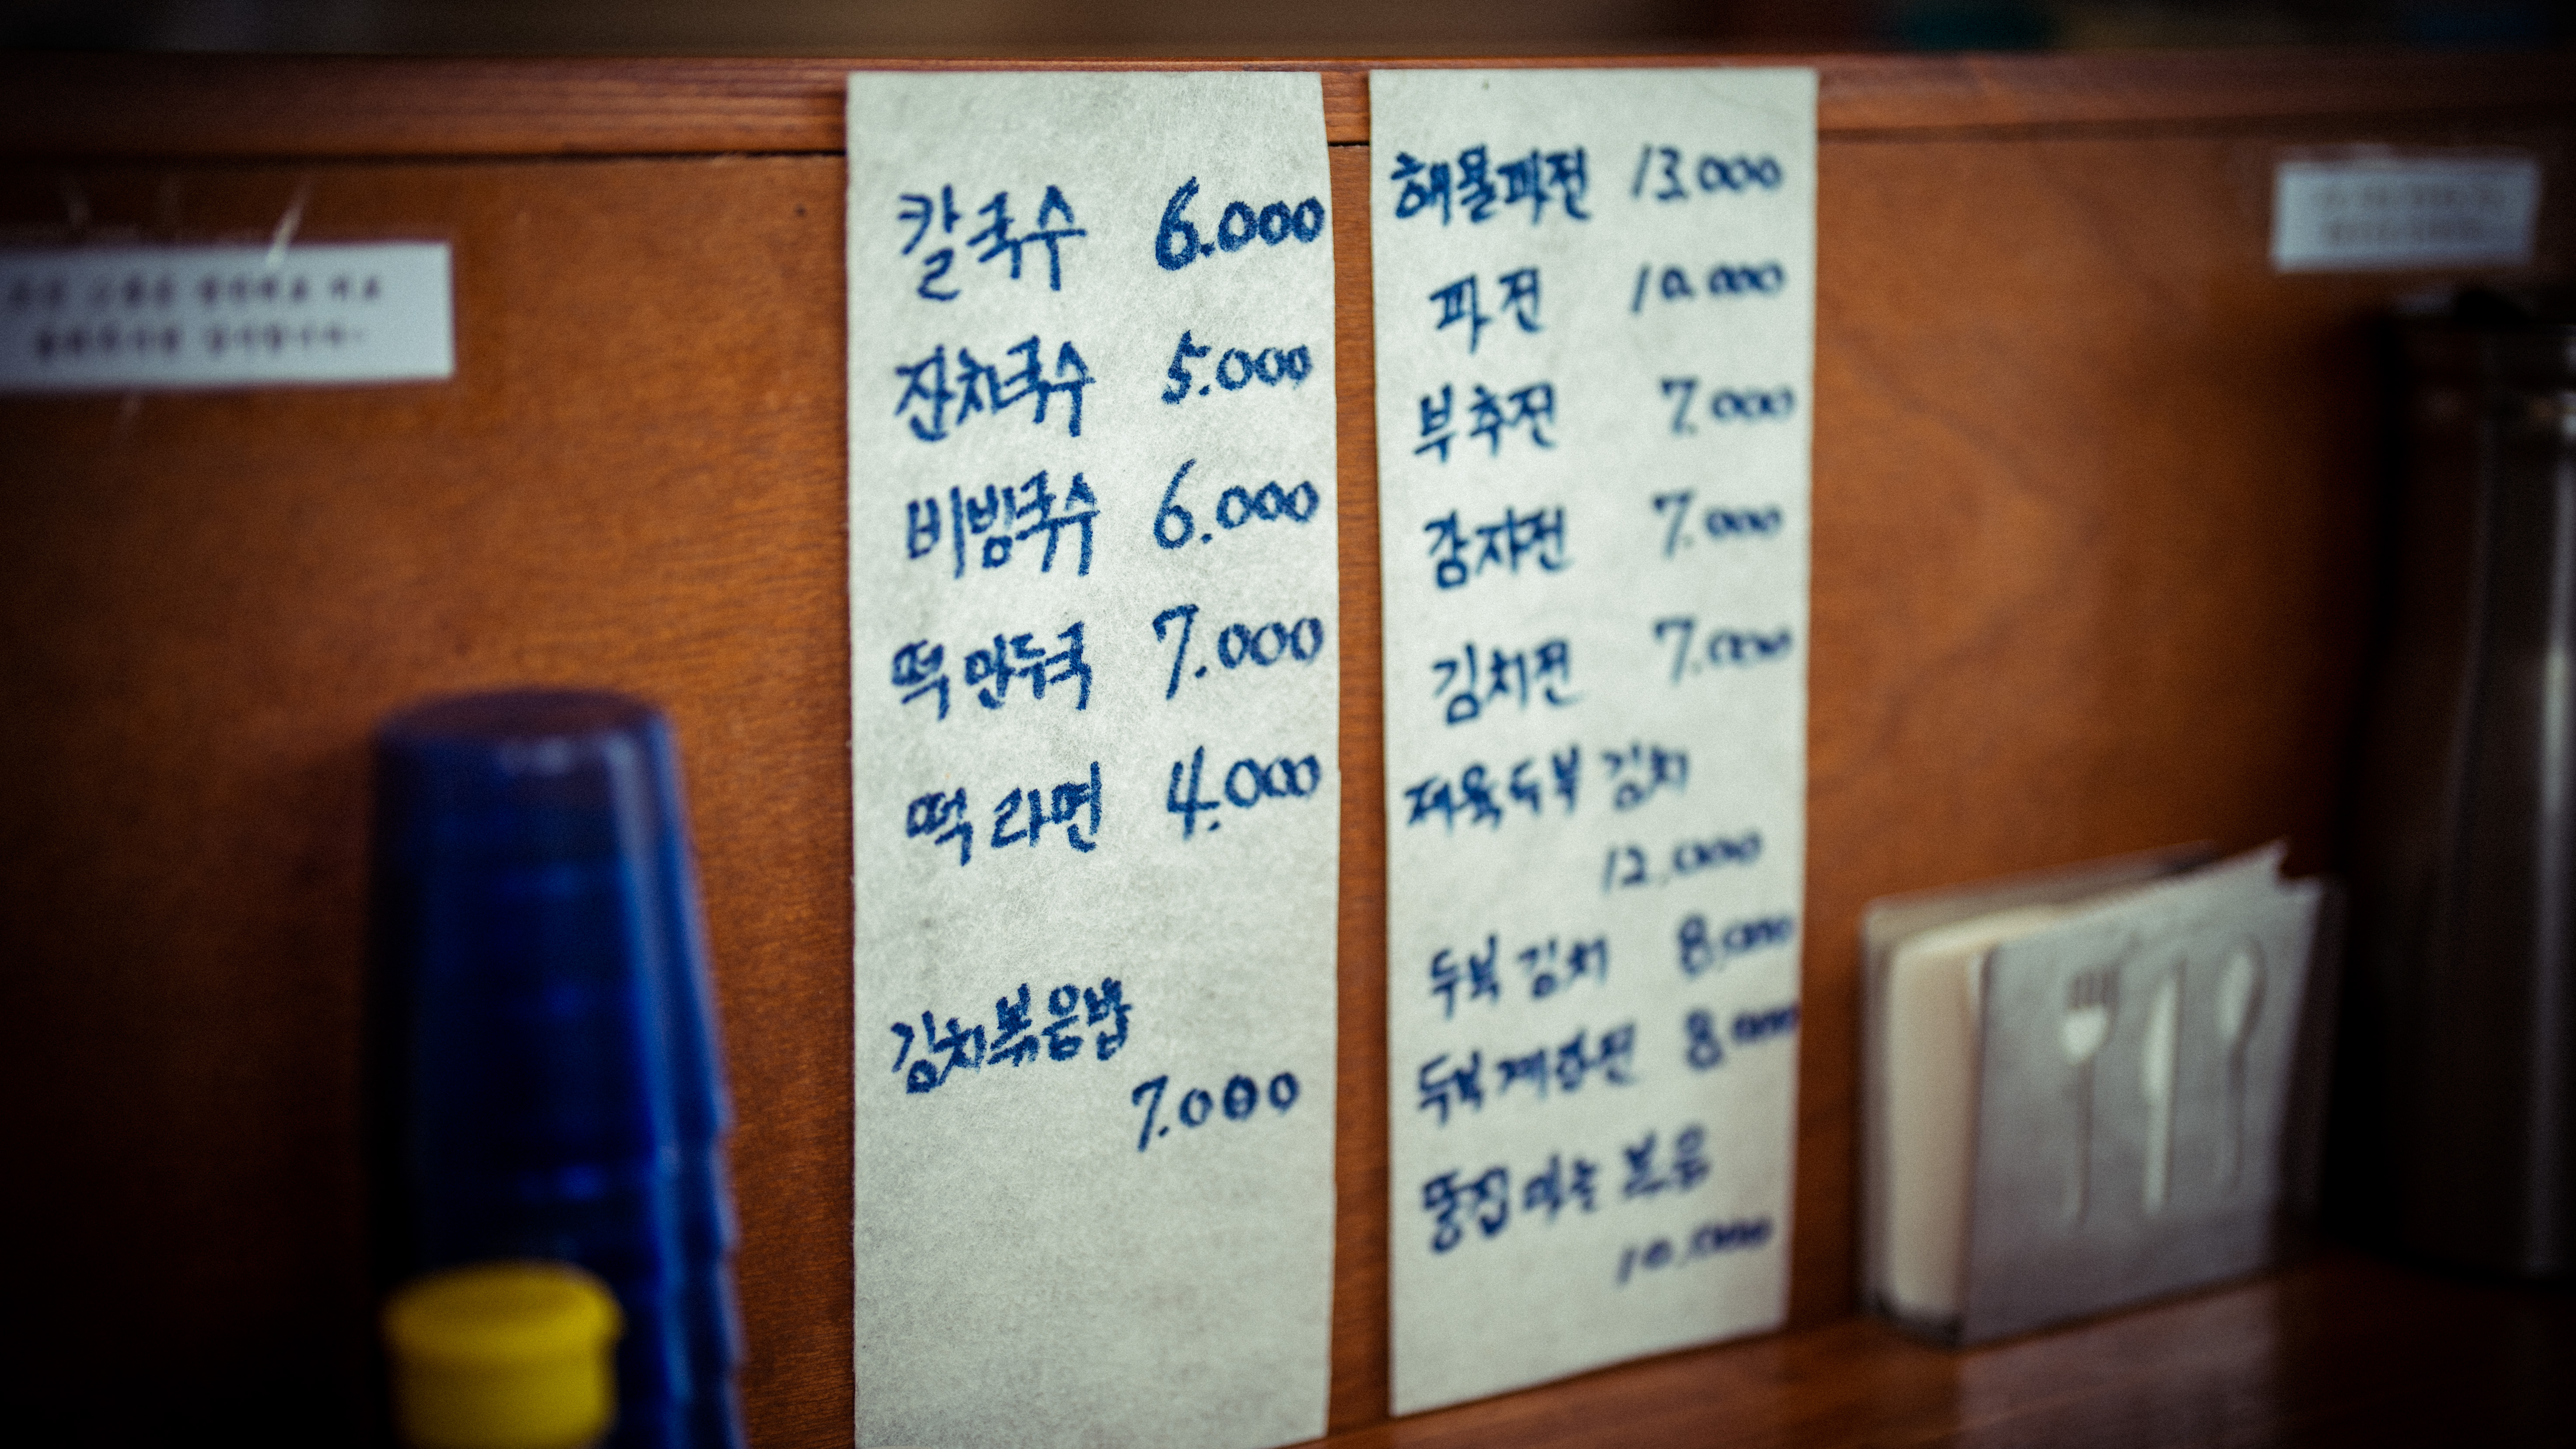 칼국수 6.000
잔치국수 5.000
비빔국수 6.000
떡만두국 7.000
떡라면 4.000
김치볶음밥
7.000
해물파전 13.000
파전 10.000
부추전 7.000
감자전 7.000
김치전 7.000
제육두부 김치
12,000
두부 김치 8,000
두부계란전 8,000
똥집마늘 볶음
10,000